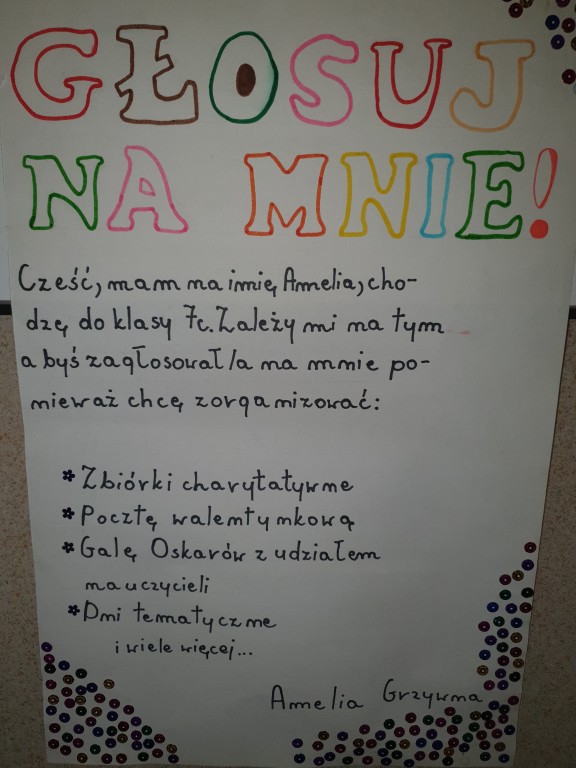 GŁOSUJ
NA MNIE!
Cześć, mam na imię Amelia, cho-
dzę do klasy 7c. Zależy mi na tym
abyś zagłosował/a na mnie po-
nieważ chcę zorganizować:
* Zbiórki charytatywne
* Pocztę walentynkową
* Galę Oskarów z udziałem
nauczycieli
* Dni tematyczne
i wiele więcej...
Amelia Grzywna